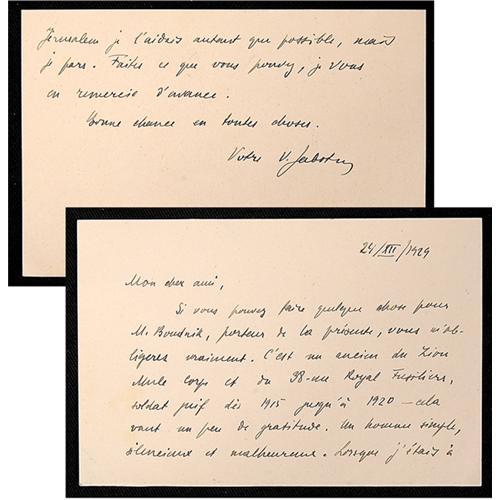 24/XII/1929
Mon cher ami,
Si vous pouvez faire quelque chose pour
M. Boudnik, porteur de la présente, vous m'ob-
ligerez vraiment. C'est un ancien du Zion
Mule Corps et du 38-me Royal Fusiliers,
soldat juif dès 1915 jusqu'à 1920 — cela
vaut un peu de gratitude. Un homme simple,
silencieux et malheureux. Lorsque j'étais à
Jérusalem je l'aidais autant que possible, mais
je pars. Faites ce que vous pouvez, je vous
en remercie d'avance.
Bonne chance en toutes choses.
Votre V. Jabotinsky